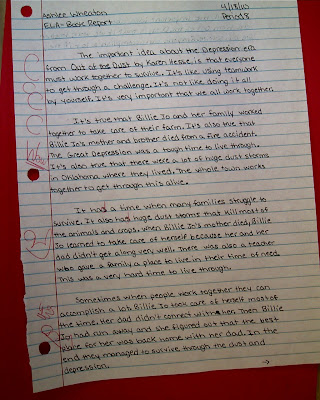 Ashlee Wheaton 4/18/05
ELA- Book Report Period 8
The important idea about the Depression era
from Out of the Dust by Karen Hesse, is that everyone
must work together to survive. It's like using teamwork
to get through a challenge. It's not like doing it all
by yourself. It's very important that we all work together.
It's true that Billie Jo and her family worked
together to take care of their farm. It's also true that
Billie Jo's mother and brother died from a fire accident.
The Great Depression was a tough time to live through.
It's also true that there were a lot of huge dust storms
in Oklahoma where they lived. The whole town works
together to get through this alive.
It had a time when many families struggle to
survive. It also has huge dust storms that kill most of
the animals and crops. when Billie Jo's mother died, Billie
Jo learned to take care of herself because her and her
dad didn't get along very well. There was also a teacher
who gave a family a place to live in their time of need.
This was a very hard time to live through.
Sometimes when people work together they can
accomplish a lot. Billie Jo took care of herself most of
the time. Her dad didn't connect with her. Then Billie
Jo had run away and she figured out that the best
place for her was back home with her dad. In the
end they managed to survive through the dust and
depression. →